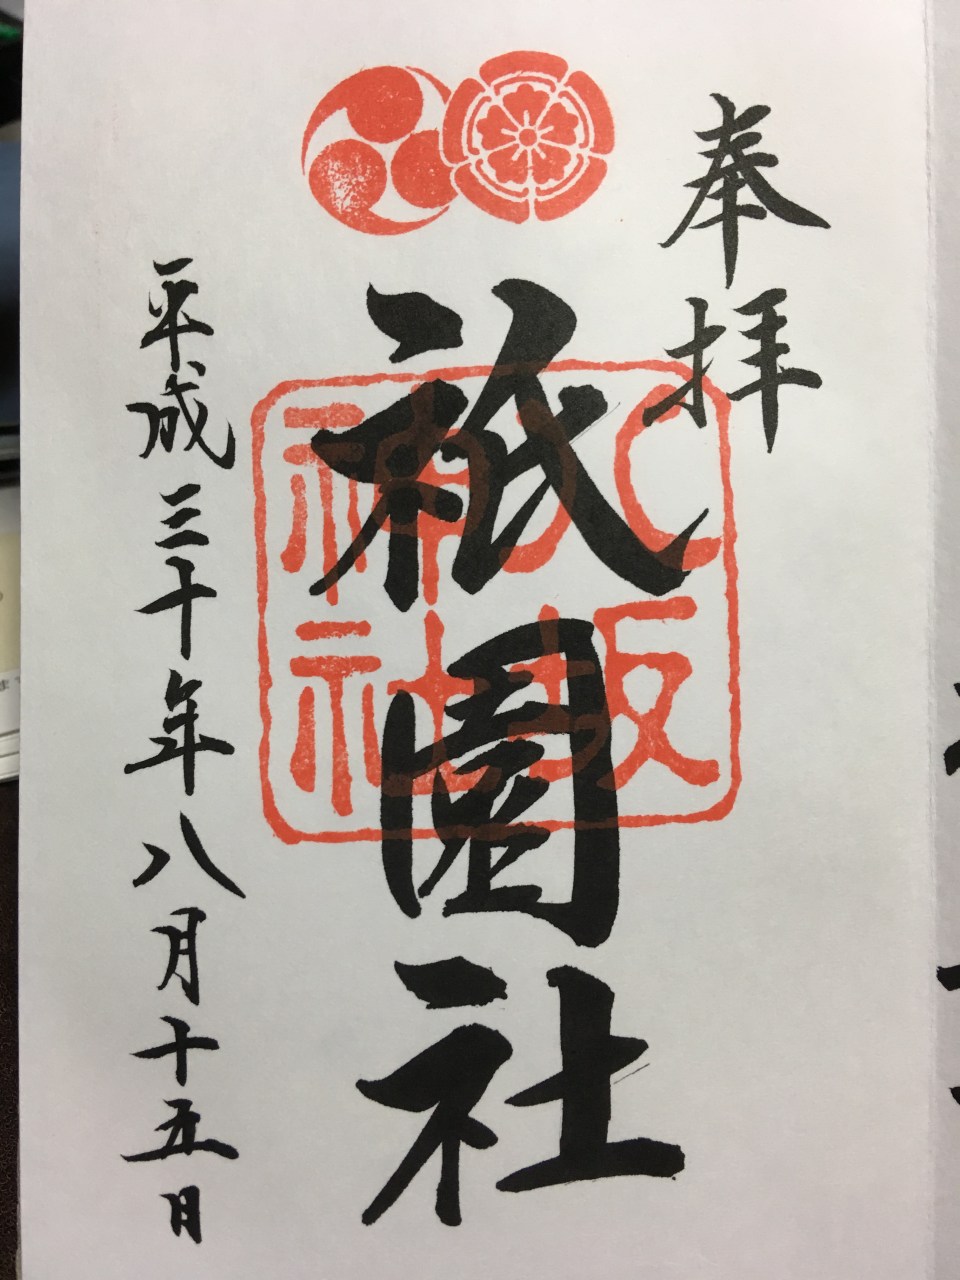 奉拝
祇園社
八坂
神社
平成三十年八月十五日